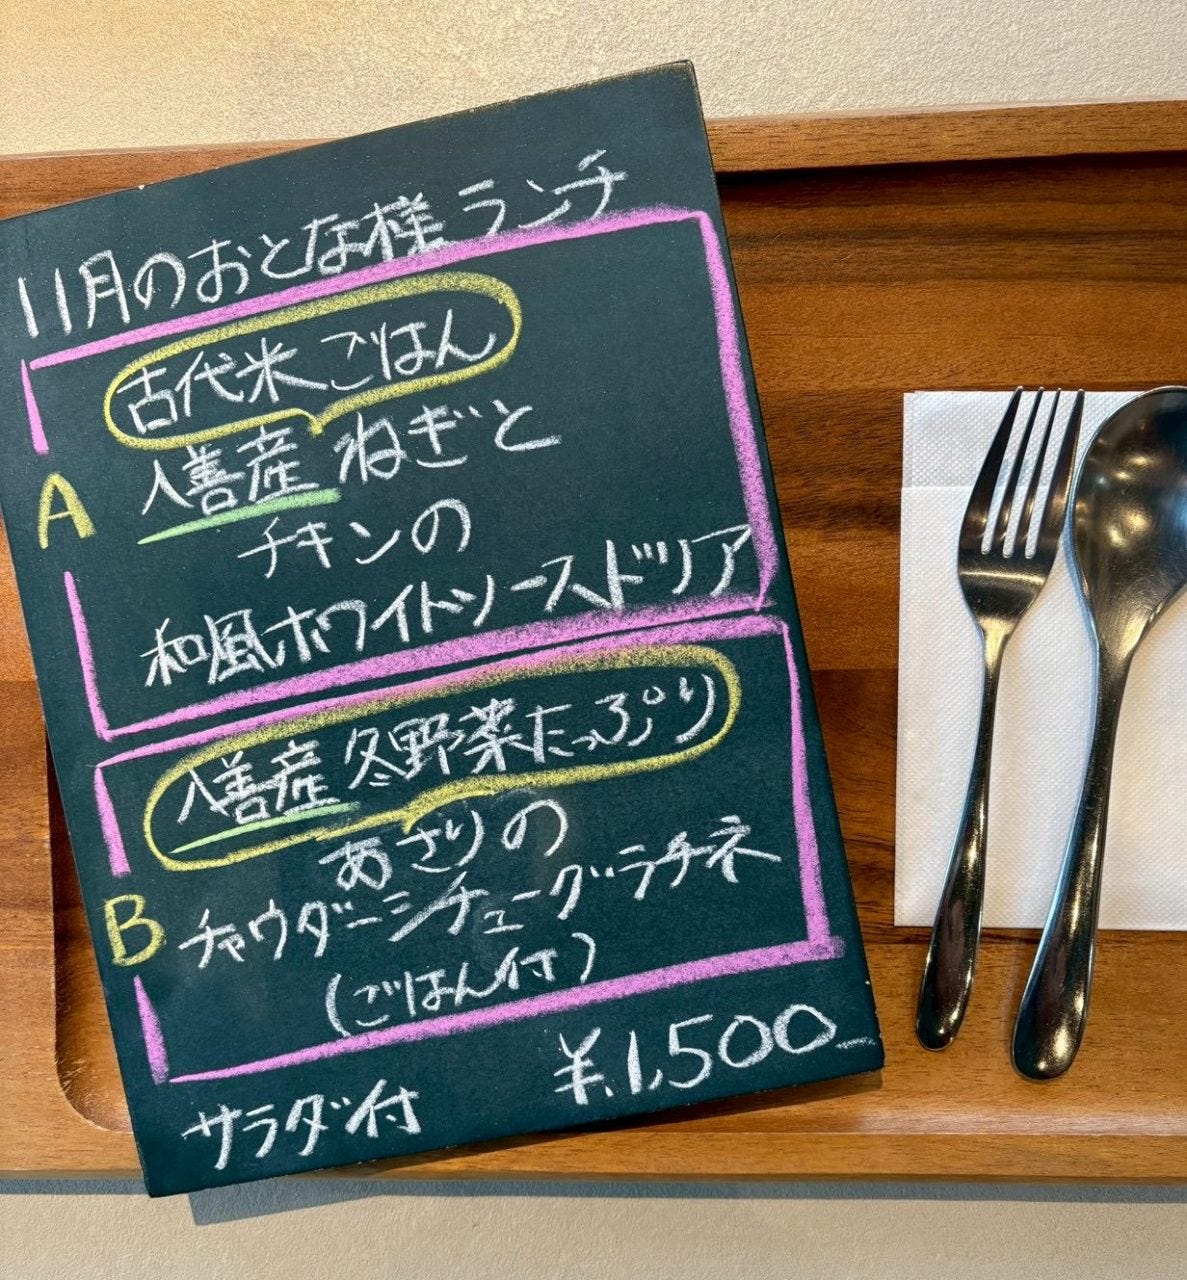 11月のおとな様ランチ
古代米ごはん
A
入善産ねぎと
チキンの
和風ホワイトソースドリア
入善産冬野菜たっぷり
あさりの
B
チャウダーシチューグラチネ
(ごはん付)
サラダ付 ¥1,500-